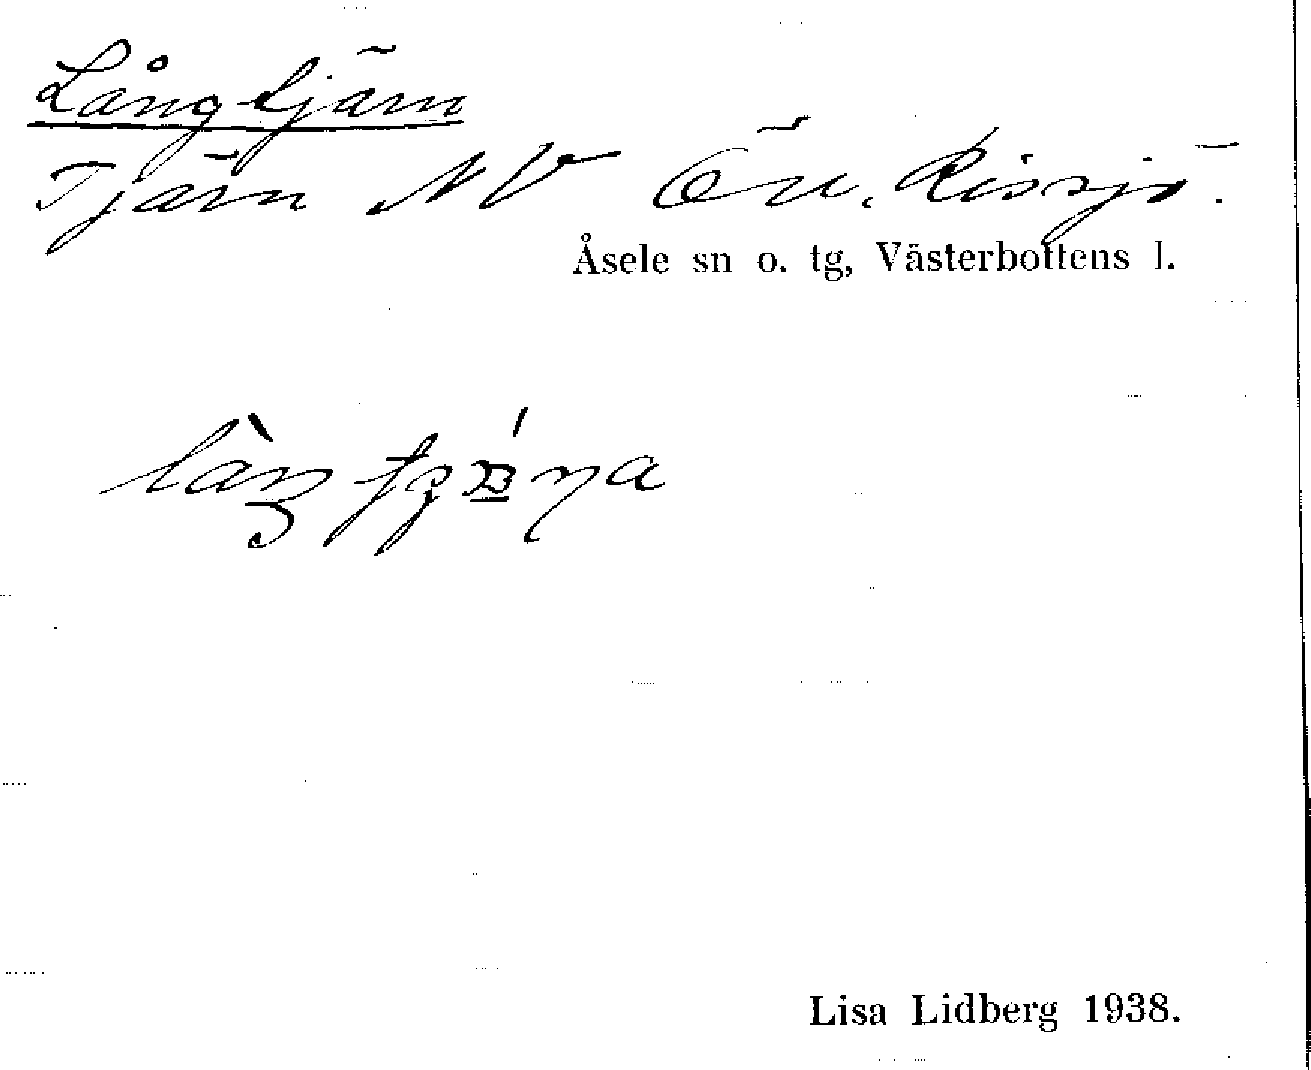 Långtjärn
Tjärn NV Ön. Rissjö.
Åsele sn o. tg, Västerbottens l.
Lisa Lidberg 1938.